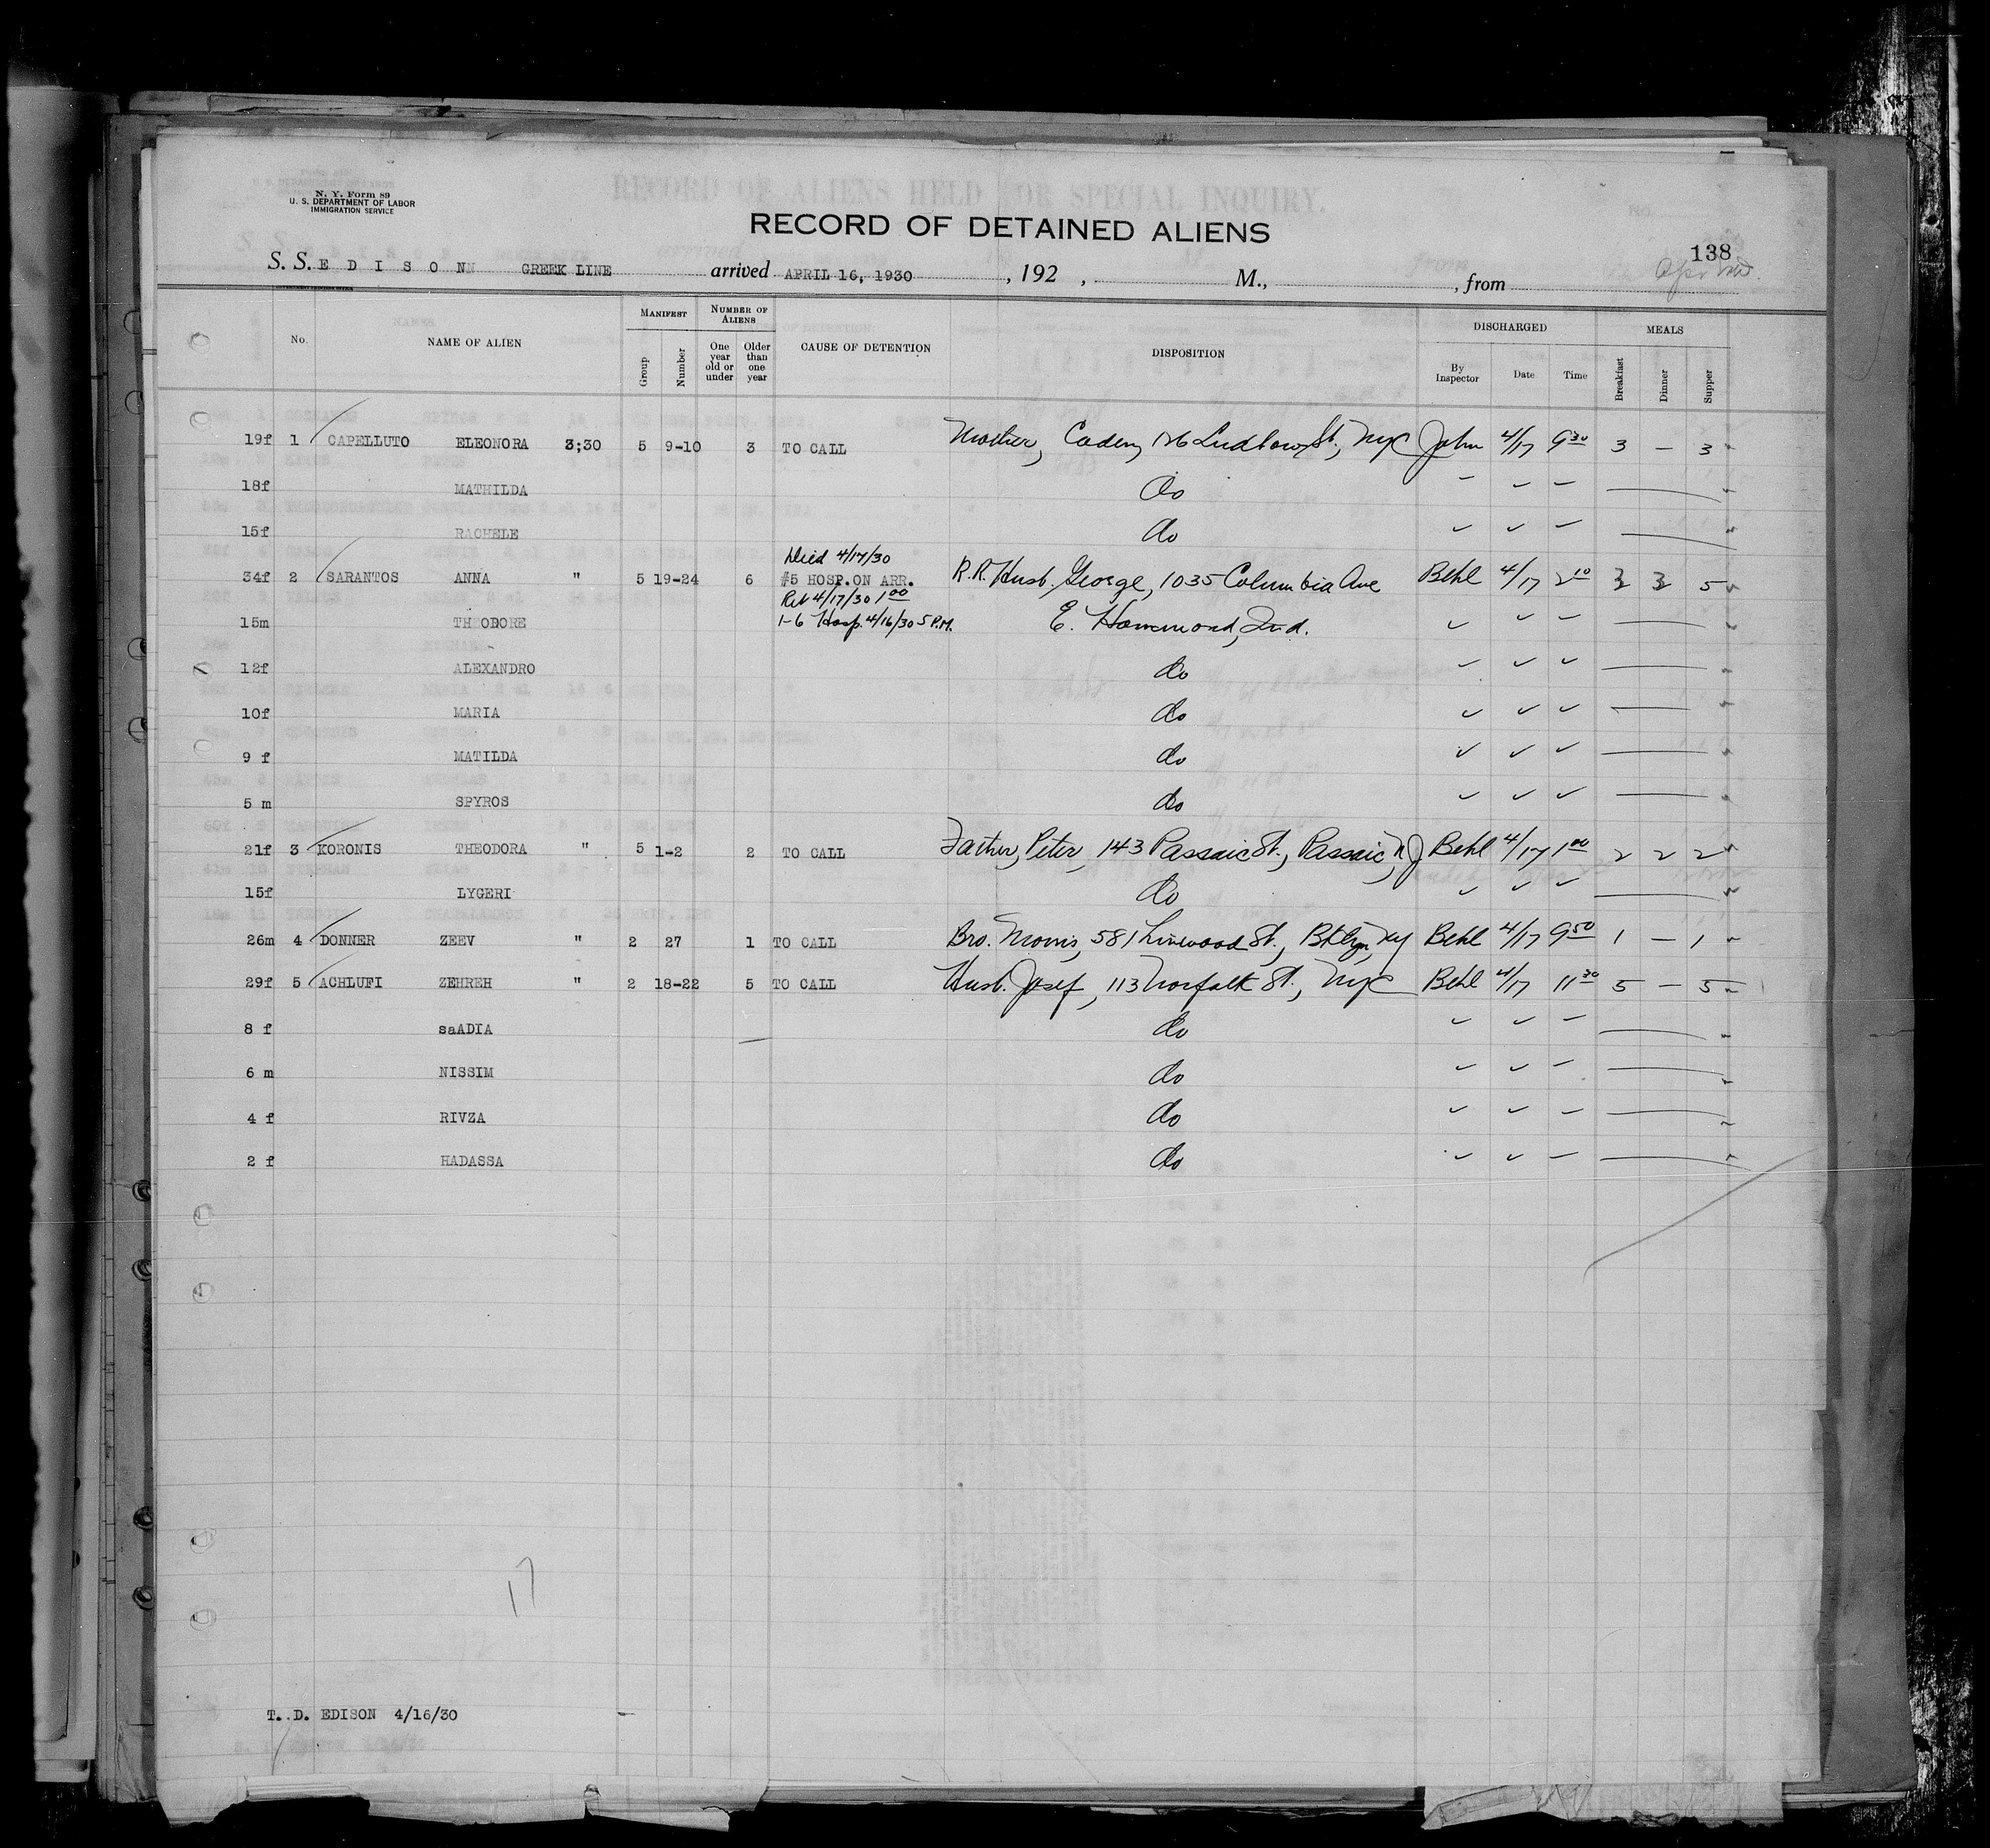 N. Y. Form 89
U. S. DEPARTMENT OF LABOR
IMMIGRATION SERVICE
RECORD OF ALIENS HELD FOR SPECIAL INQUIRY.
RECORD OF DETAINED ALIENS
138
S. S. E D I S O N N GREEK LINE arrived APRIL 16, 1930 , 192 , M., , from
No. NAME OF ALIEN MANIFEST Group Number NUMBER OF ALIENS One year old or under Older than one year CAUSE OF DETENTION DISPOSITION DISCHARGED By Inspector Date Time MEALS Breakfast Dinner Supper
19f 1 CAPELLUTO ELEONORA 3;30 5 9-10 3 TO CALL Mother, Caden, 126 Ludlow St., NYC John 4/17 9 30 3 — 3
18f MATHILDA do
15f RACHELE do
Died 4/17/30
34f 2 SARANTOS ANNA " 5 19-24 6 #5 HOSP. ON ARR. R.R. Husb. George, 1035 Columbia Ave Behl 4/17 2 10 3 3 5
Ret 4/17/30 1 00
15m THEODORE 1-6 Hosp. 4/16/30 5 P.M. E. Hammond, Ind.
12f ALEXANDRO do
10f MARIA do
9 f MATILDA do
5 m SPYROS do
21f 3 KORONIS THEODORA " 5 1-2 2 TO CALL Father, Peter, 143 Passaic St., Passaic, N J Behl 4/17 1 00 2 2 2
15f LYGERI do
26m 4 DONNER ZEEV " 2 27 1 TO CALL Bro. Morris, 581 Linwood St., Bklyn, Ny Behl 4/17 9 50 1 — 1
29f 5 ACHLUFI ZEHREH " 2 18-22 5 TO CALL Husb. Josef, 113 Norfolk St., NYC Behl 4/17 11 30 5 — 5
8 f saADIA do
6 m NISSIM do
4 f RIVZA do
2 f HADASSA do
17
T. D. EDISON 4/16/30